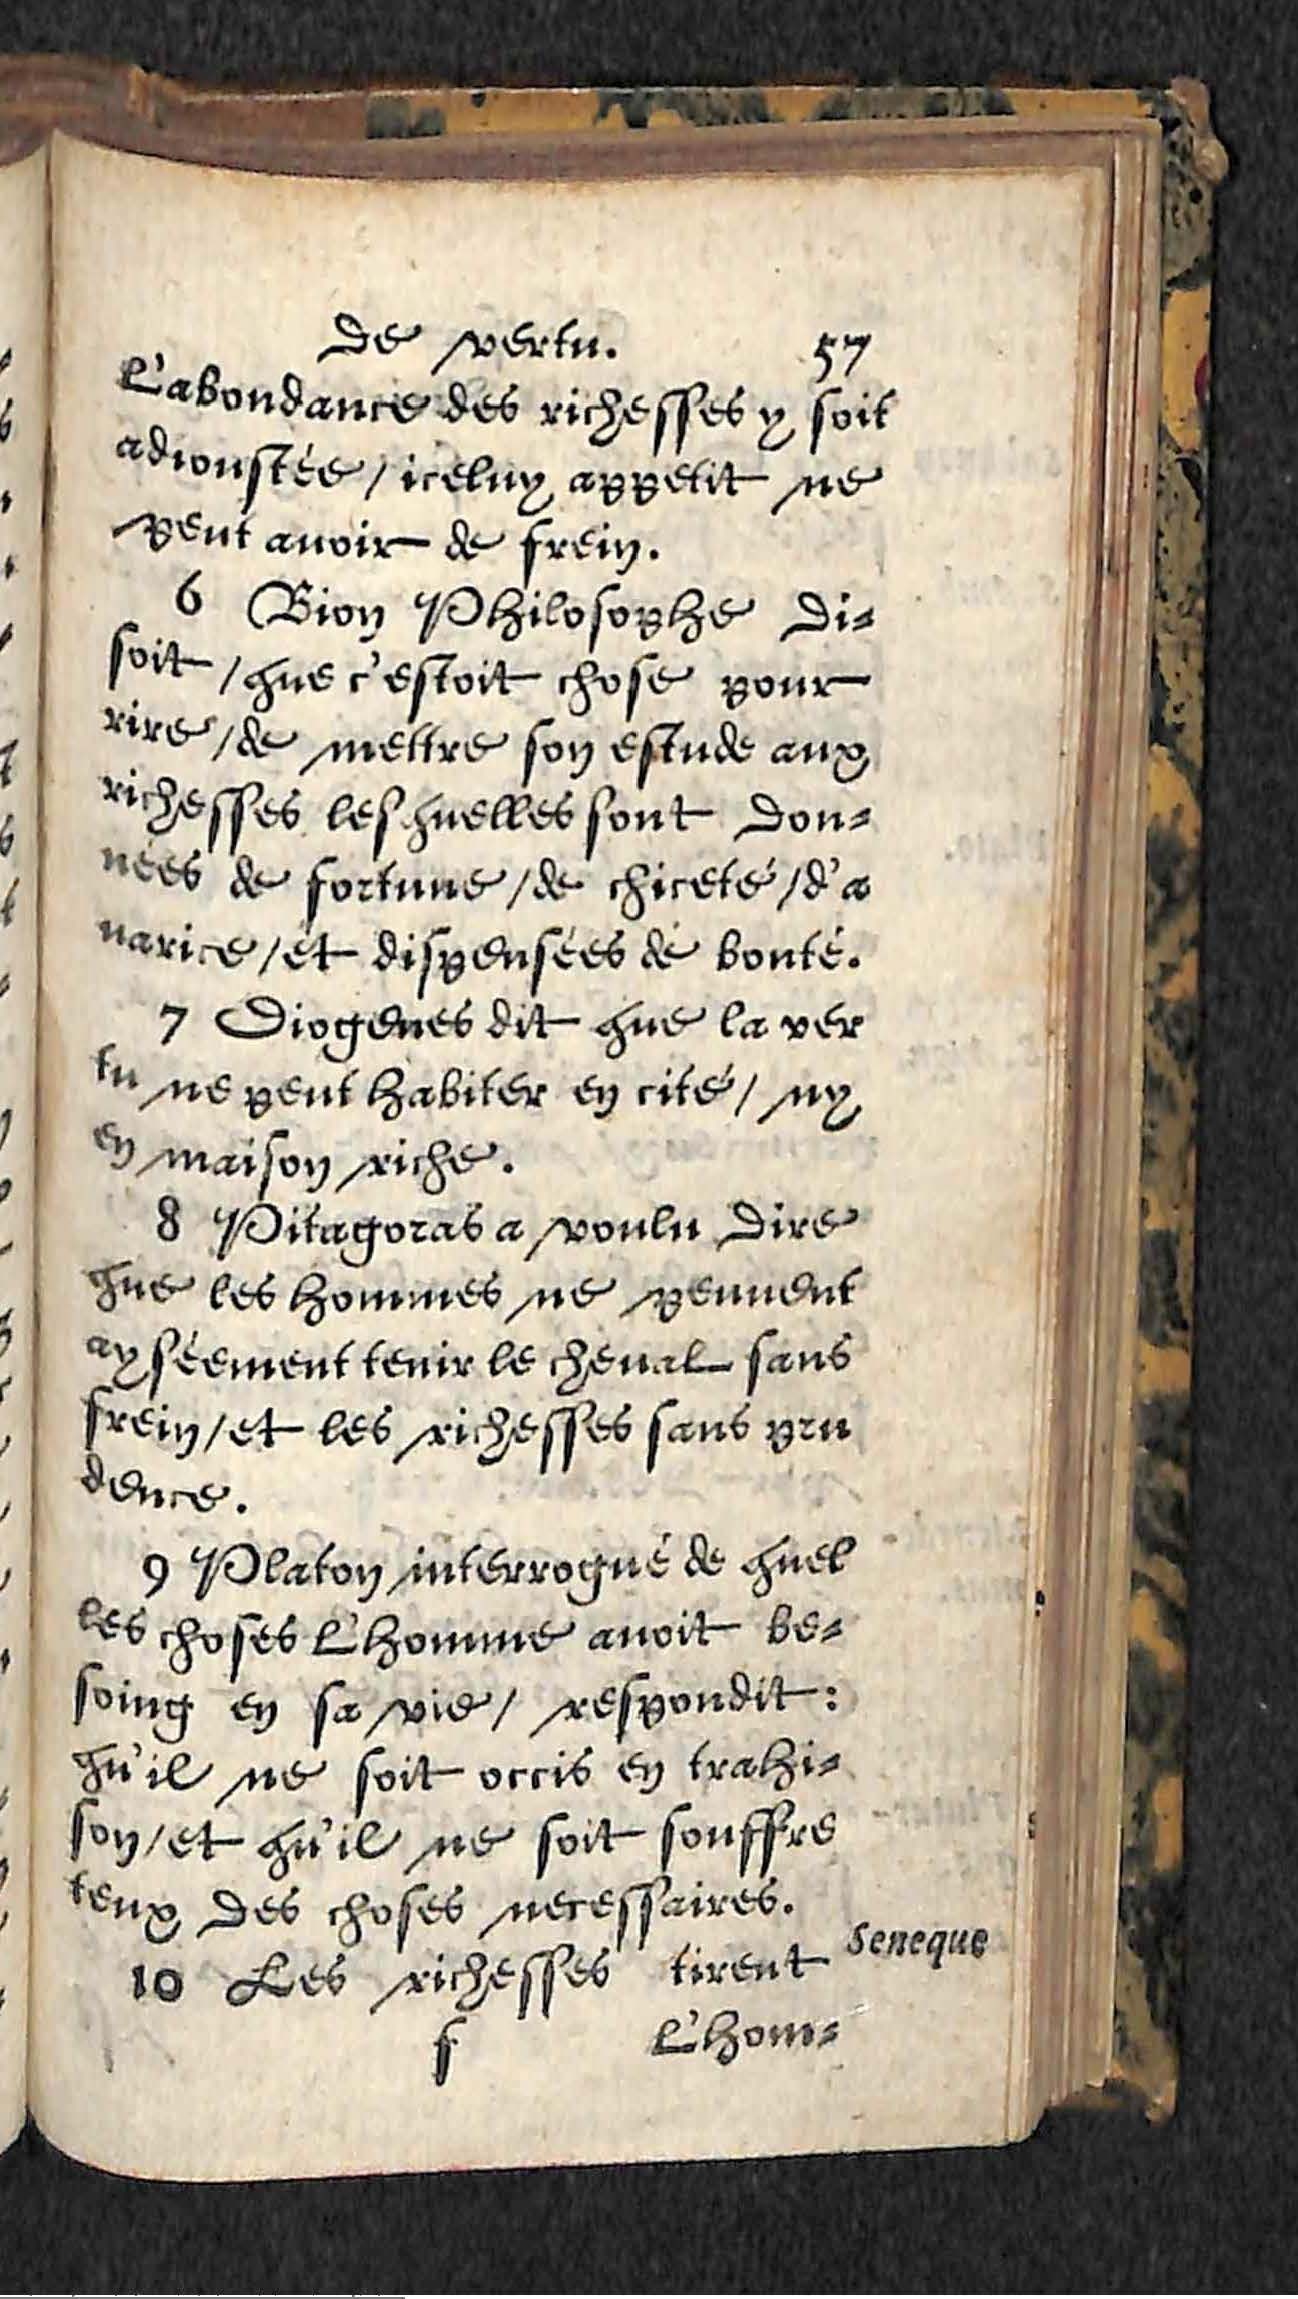 De vertu. 57
L'abondance des richesses y soit
adioustée / iceluy appetit ne
peut auoir de frein.
6 Bion Philosophe di-
soit / que c'estoit chose pour
rire / de mettre son estude aux
richesses lesquelles sont don-
nées de fortune / de chiceté / d'a
uarice / et dispensées de bonté.
7 Diogenes dit que la ver
tu ne peut habiter en cité / ny
en maison riche.
8 Pitagoras a voulu dire
que les hommes ne peuuent
ayséement tenir le cheual sans
frein / et les richesses sans pru
dence.
9 Platon interrogué de quel
les choses l'homme auoit be-
soing en sa vie / respondit :
qu'il ne soit occis en trahi-
son / et qu'il ne soit souffre
teux des choses necessaires.
10 Les richesses tirent
Seneque
f l'hom-